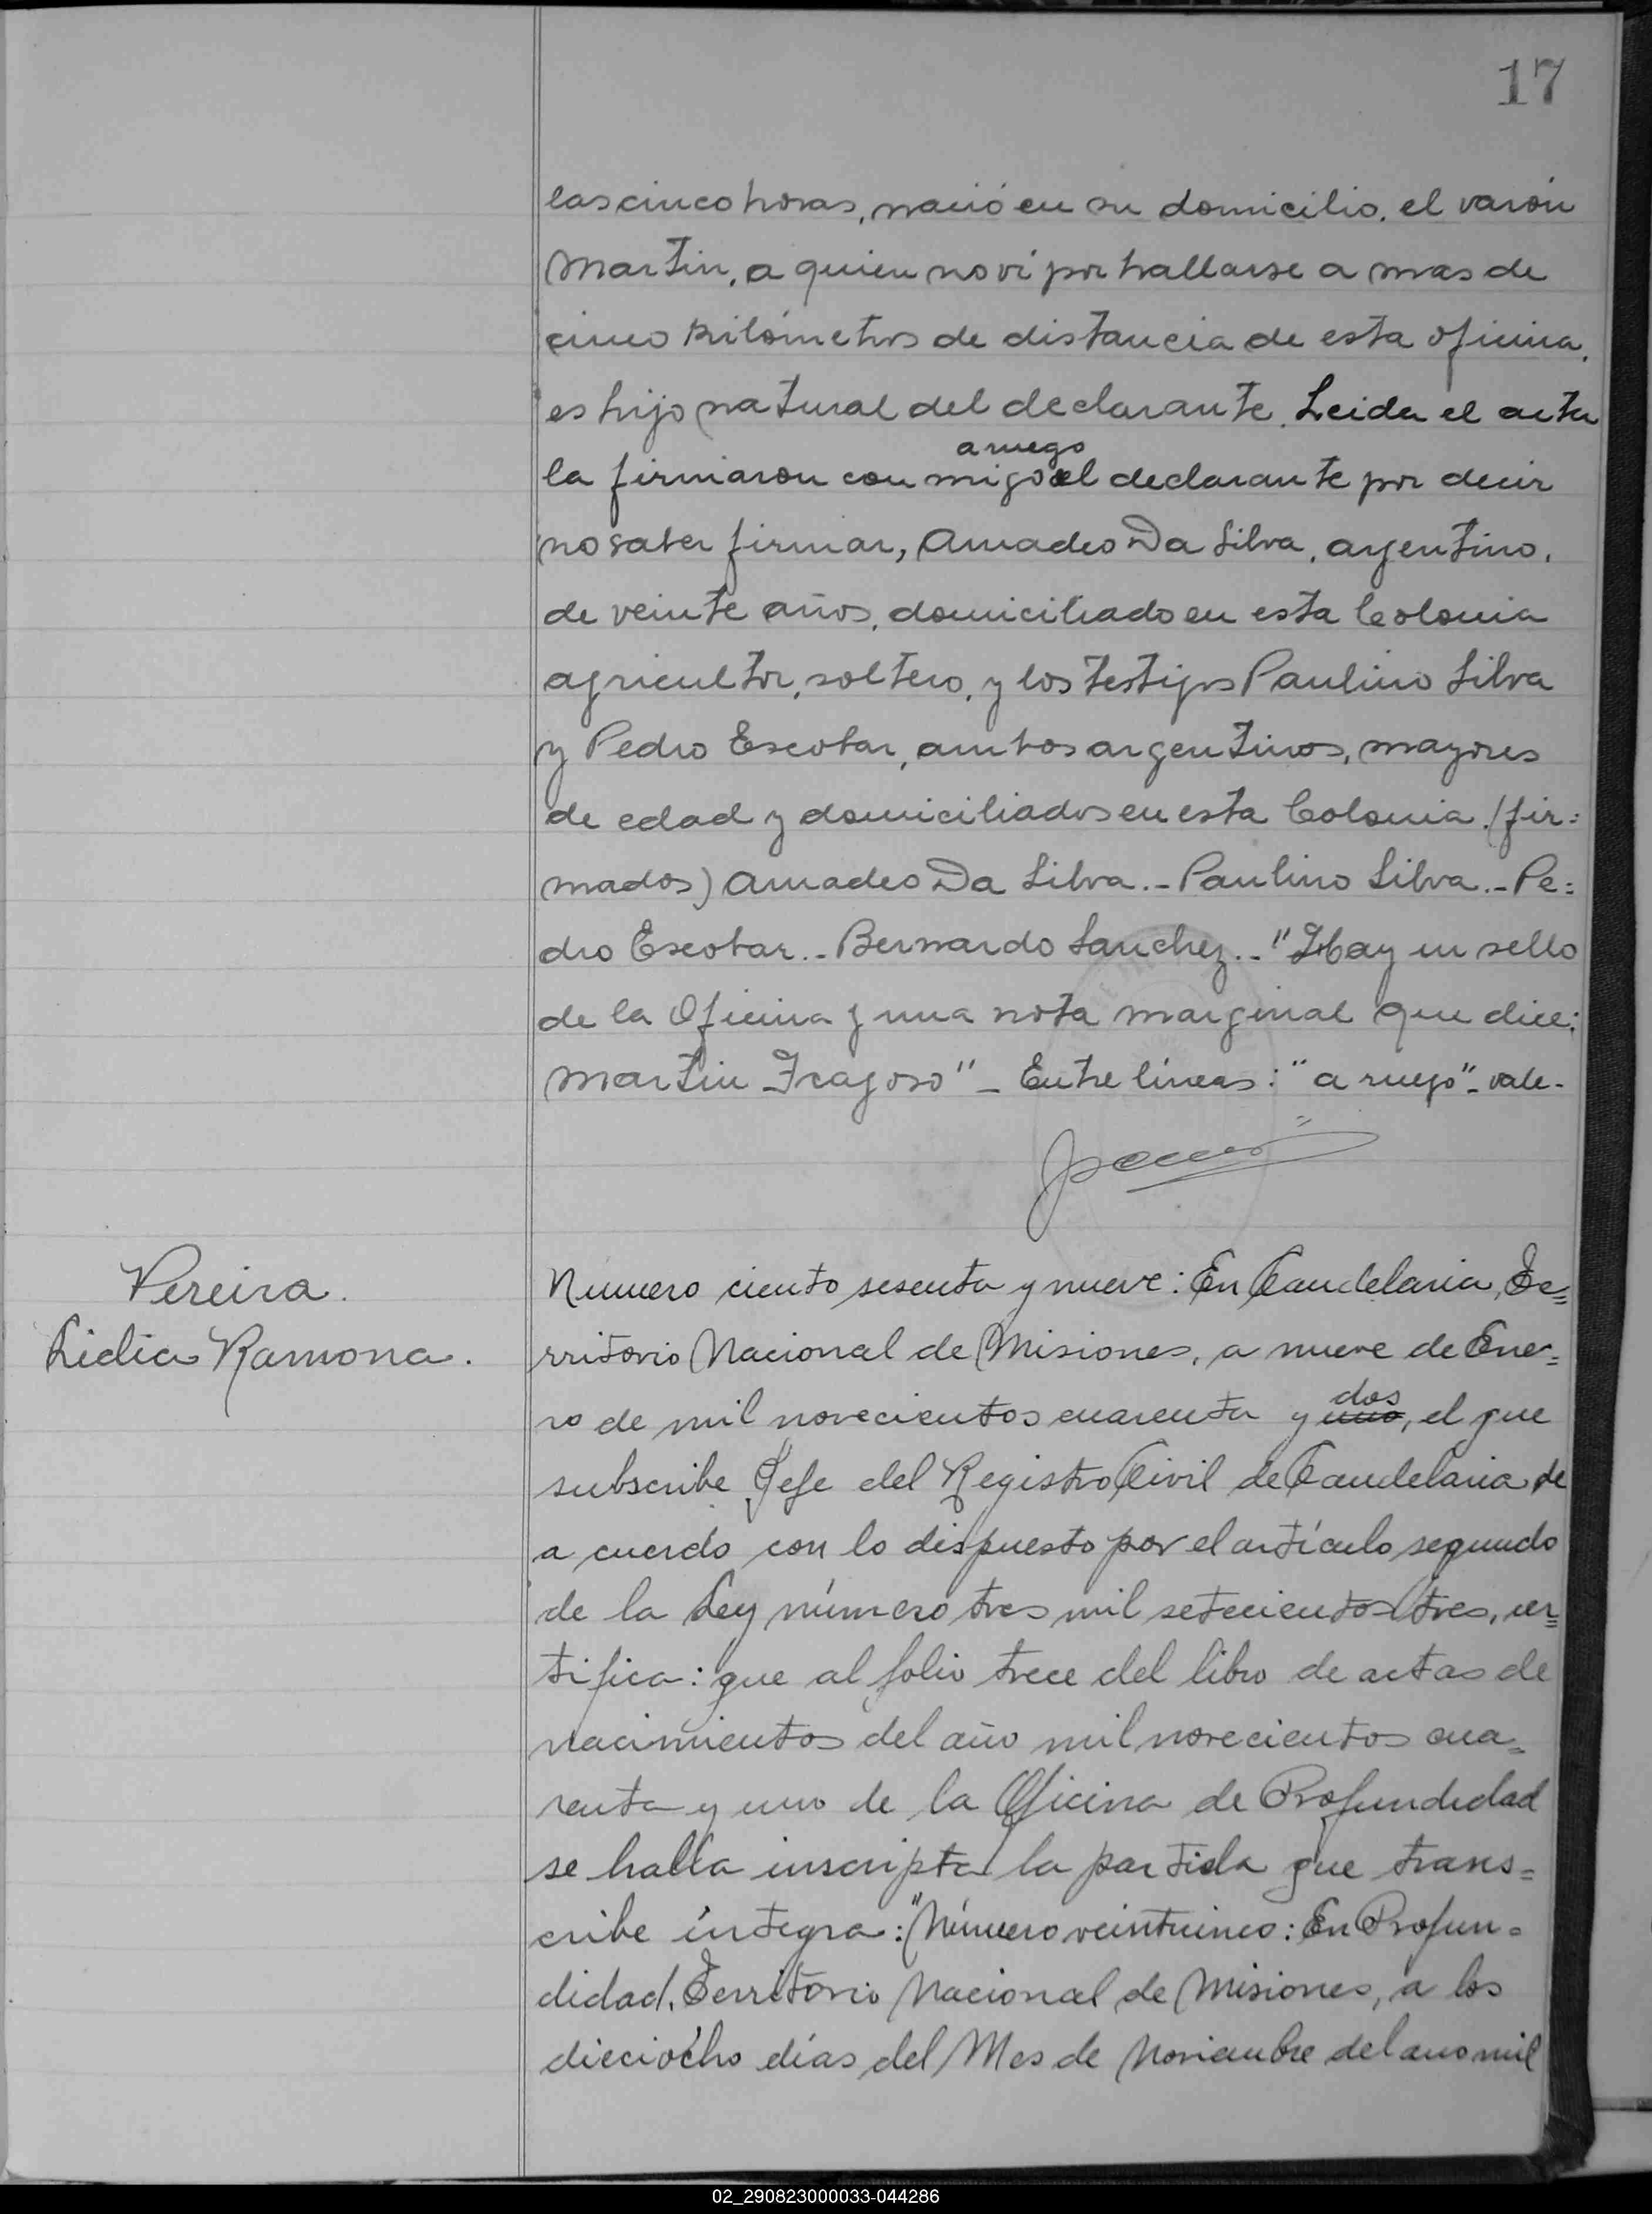 17
las cinco horas, nació en su domicilio, el varón
Martin, a quien no ví por hallarse a mas de
cinco kilómetros de distancia de esta oficina,
es hijo natural del declarante. Leida el acta
a ruego
la firmaron con migo el declarante por decir
no saber firmar, Amadeo Da Silva, argentino,
de veinte años, domiciliado en esta Colonia
agricultor, soltero, y los testigos Paulino Silva
y Pedro Escobar, ambos argentinos, mayores
de edad y domiciliados en esta Colonia. (fir=
mados) Amadeo Da Silva.- Paulino Silva.- Pe=
dro Escobar.- Bernardo Sanchez.- "Hay un sello
de la Oficina y una nota marginal que dice:
Martin Fragoso" - Entre líneas: "a ruego" - vale-
Pereira.
Lidia Ramona.
Número ciento sesenta y nueve: En Candelaria, Te=
rritorio Nacional de Misiones, a nueve de Ene=
dos
ro de mil novecientos cuarenta y uno, el que
subscribe Jefe del Registro Civil de Candelaria de
a cuerdo con lo dispuesto por el artículo segundo
de la Ley número tres mil setecientos tres, cer=
tifica: que al folio trece del libro de actas de
nacimientos del año mil novecientos cua=
renta y uno de la Oficina de Profundidad
se halla inscripta la partida que trans=
cribe íntegra: "Número veinticinco: En Profun=
didad, Territorio Nacional de Misiones, a los
dieciócho días del Mes de Noviembre del ano mil
02_290823000033-044286